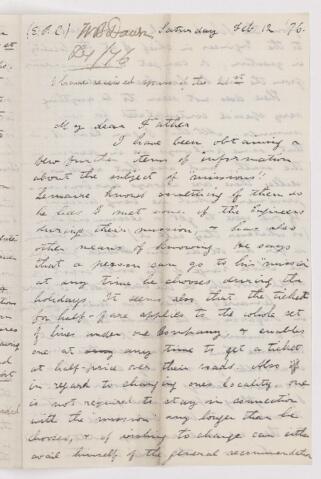 (E.P.C.) Saturday Feb 12 /76.
I have received yours of the 21st
My dear Father
I have been obtaining a
few further items of information
about the subject of missions!!
Lemaire knows something of them as
he lies I met some of the Engineers
during their mission, & has also
other means of knowing. He says
that a person can go to his "mission"
at any time he chooses during the
holidays. It seems also that the ticket
for half-fare applies to the whole set
of lines under one Company, & enables
one at any time to get a ticket
at half-price over their roads. Also if
in regard to changing ones locality, one
is not required to stay in connection
with the "mission" any longer than he
chooses, & if wishing to change can either
avail himself of the general recommendation